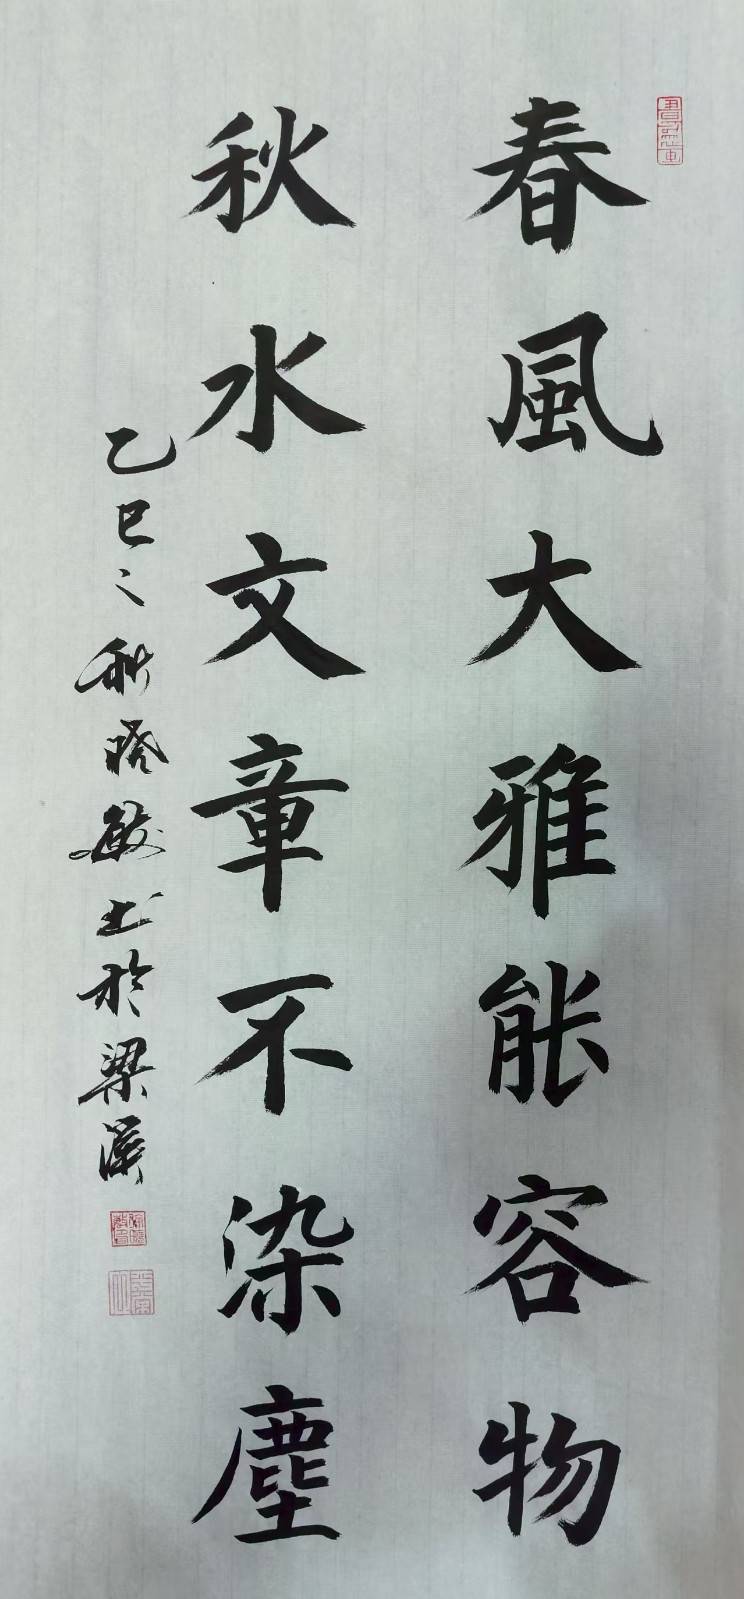 春風大雅能容物
秋水文章不染塵
乙巳之秋曉敏書於梁溪